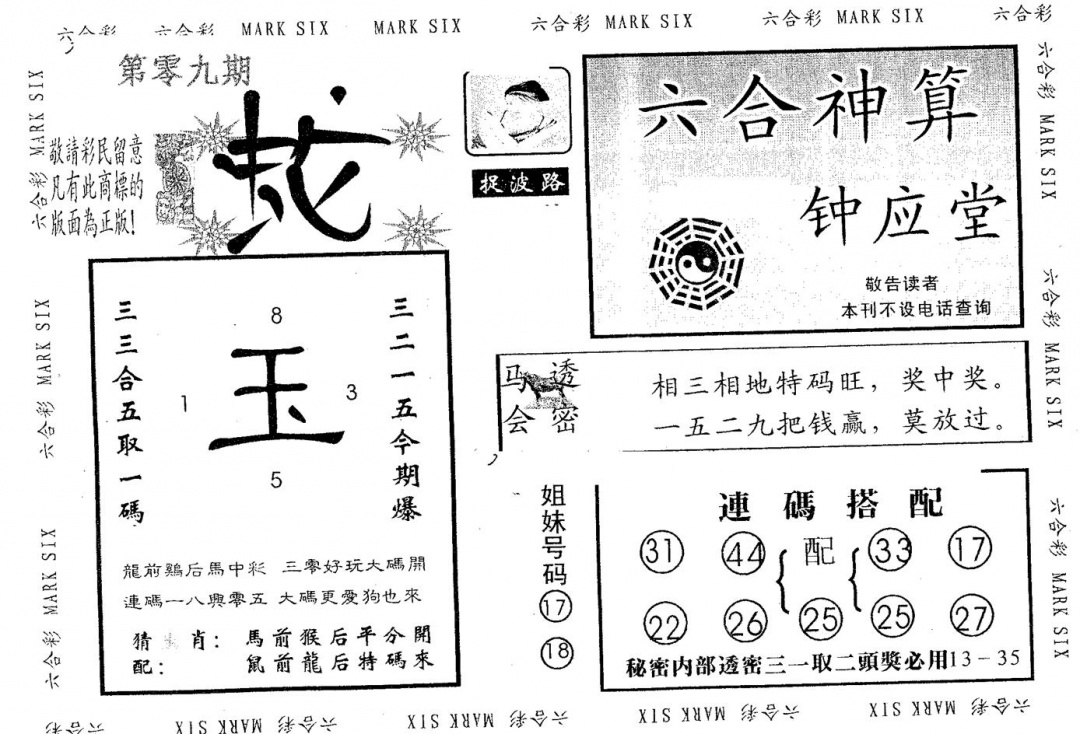 六合彩 六合彩 MARK SIX MARK SIX 六合彩 MARK SIX 六合彩 MARK SIX 六合彩
六合彩 MARK SIX
六合彩 MARK SIX
六合彩 MARK SIX
第零九期
敬請彩民留意
凡有此商標的
版面為正版!
蛇
捉波路
六合神算
钟应堂
敬告读者
本刊不设电话查询
三三合五取一碼
8
1 玉 3
5
三二一五今期爆
龍前鷄后馬中彩 三零好玩大碼開
連碼一八興零五 大碼更愛狗也來
猜生肖: 馬前猴后平分開
配: 鼠前龍后特碼來
马会
透密
相三相地特码旺,奖中奖。
一五二九把钱赢,莫放过。
姐妹号码
17
18
連碼搭配
31 44 { 配 { 33 17
22 26 25 25 27
秘密内部透密三一取二頭獎必用13-35
六合彩 MARK SIX
六合彩 MARK SIX
六合彩 MARK SIX
六合彩 六合彩 MARK SIX 六合彩 MARK SIX 六合彩 MARK SIX 六合彩 MARK SIX